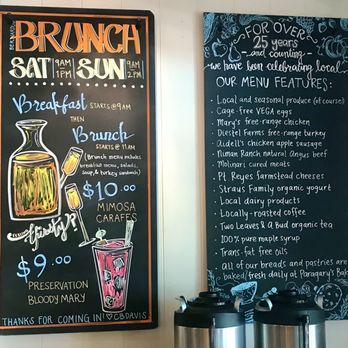 BERNARDO'S
BRUNCH
SAT 9AM 1PM SUN 9AM 2PM
Breakfast STARTS @ 9AM
THEN
Brunch
STARTS @ 11AM
(Brunch menu includes
breakfast menu, salads,
soup, & turkey sandwich)
$10.00
MIMOSA
CARAFES
thirsty?
$9.00
PRESERVATION
BLOODY MARY
THANKS FOR COMING IN! ♡ CBDAVIS
FOR OVER
25 years
and counting
we have been celebrating local
OUR MENU FEATURES:
• Local and seasonal produce (of course)
• Cage-free VEGA eggs
• Mary's free-range chicken
• Diestel Farms free-range turkey
• Aidell's chicken apple sausage
• Niman Ranch natural Angus beef
• Molinari cured meats
• Pt Reyes farmstead cheeses
• Straus Family organic yogurt
• Local dairy products
• Locally-roasted coffee
• Two Leaves & A Bud organic tea
• 100% pure maple syrup
• Trans-fat free oils
• All of our breads and pastries are
baked fresh daily at Paragary's Bak